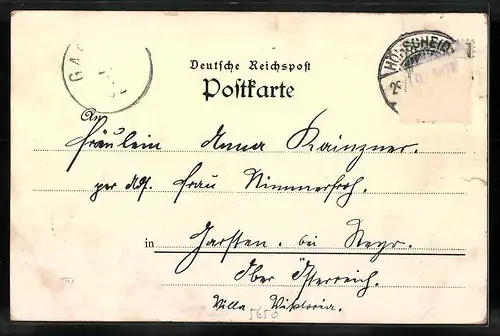 Deutsche Reichspost
Postkarte
HÖHSCHEID
29
GA
An
Fräulein Anna Kainzner.
per Adr. Frau Nimmerfroh.
in Garsten. bei Steyr.
Ober Österreich.
Villa Viktoria.
5650